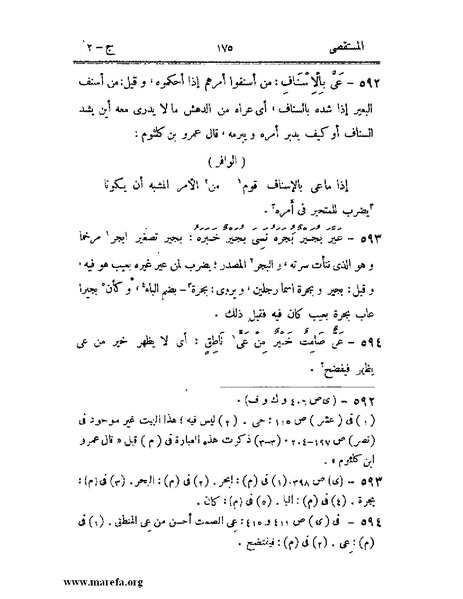 المستقصى ١٧٥ ج – ٢
٥٩٢ – عَيَّ بِالْإِسْنَافِ : من أسنفوا أمرهم إذا أحكموه ، وقيل : من أسنف
البعير إذا شده بالسناف ، أى عراه من الدهش ما لا يدرى معه أين يشد
السناف أو كيف يدبر أمره ويبرمه ، قال عمرو بن كلثوم :
( الوافر )
إذا ما عى بالإسناف قوم١ من٢ الأمر المشبه أن يكونا
٣يضرب للمتحير فى أمره٣ .
٥٩٣ – عَيَّرَ بُجَيْرٌ بُجَرَهْ نَسِيَ بُجَيْرٌ خَبَرَهْ : بجير تصغير ابجر١ مرخما
و هو الذى نتأت سرته ، و البجر٢ المصدر ؛ يضرب لمن عير غيره بعيب هو فيه ،
و قيل : بجير و بجرة اسما رجلين ، و يروى : بجرة٣ – بضم الباء٤ ، و كأن٥ بجيرا
عاب بجرة بعيب كان فيه فقيل ذلك .
٥٩٤ – عَىٌّ صَامِتٌ خَيْرٌ مِنْ عَىٍّ١ نَاطِقٍ : أى لا يظهر خير من عى
يظهر فيفضح٢ .
٥٩٢ – (ى ص ٤٠٦ و ك و ف) .
(١) فى ( عشر ) ص ١١٥ : حى . (٢) ليس فيه ؛ هذا البيت غير موجود فى
(نصر) ص ١٩٧–٢٠٤ . (٣–٣) ذكرت هذه العبارة فى ( م ) قبل « قال عمرو
ابن كلثوم » .
٥٩٣ – (ى) ص ٣٩٨ . (١) فى (م) : ابحر . (٢) فى (م) : البحر . (٣) فى (م) :
بحرة . (٤) فى (م) : البا . (٥) فى (م) : كان .
٥٩٤ – فى (ى) ص ٤١١ و ٤١٥ : عى الصمت أحسن من عى المنطق . (١) فى
(م) : عى . (٢) فى (م) : فيفتضح .
www.marefa.org